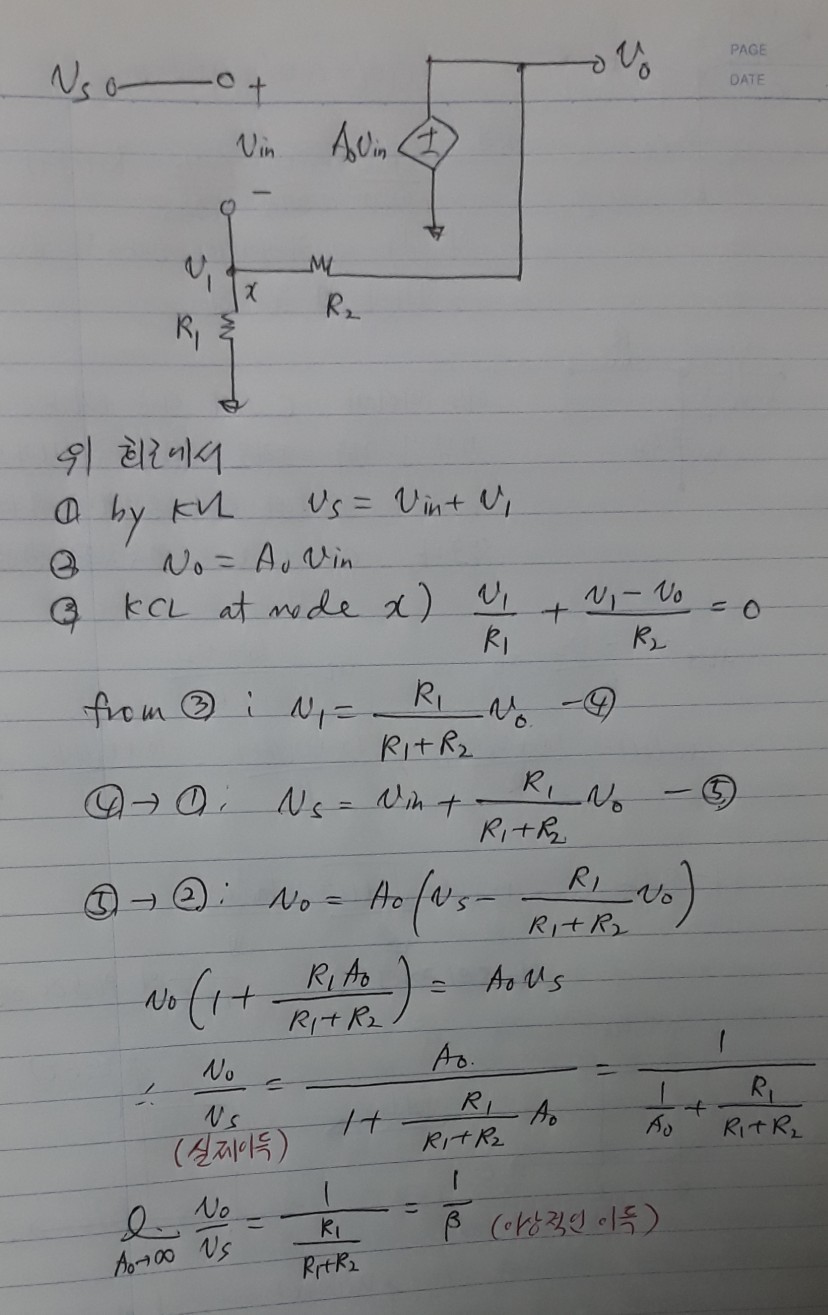 PAGE
DATE
Vs + Vo
Vin A₀Vin
−
V₁ x
R₂
R₁
위 회로에서
① by KVL Vs = Vin + V₁
② Vo = A₀ Vin
③ KCL at node x) V₁/R₁ + (V₁ − Vo)/R₂ = 0
from ③ : V₁ = R₁/(R₁+R₂) Vo −④
④ → ① : Vs = Vin + R₁/(R₁+R₂) Vo −⑤
⑤ → ② : Vo = A₀(Vs − R₁/(R₁+R₂) Vo)
Vo(1 + R₁A₀/(R₁+R₂)) = A₀Vs
∴ Vo/Vs = A₀/(1 + R₁/(R₁+R₂) A₀) = 1/(1/A₀ + R₁/(R₁+R₂))
(실제이득)
l. A₀→∞ Vo/Vs = 1/(R₁/(R₁+R₂)) = 1/β (이상적인 이득)